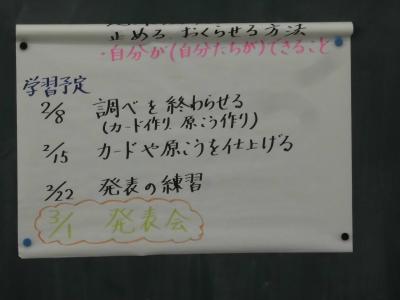 止める おくらせる方法
・自分が(自分たちが)できること
学習予定
2/8 調べを終わらせる
(カード作り 原こう作り)
2/15 カードや原こうを仕上げる
2/22 発表の練習
3/1 発表会